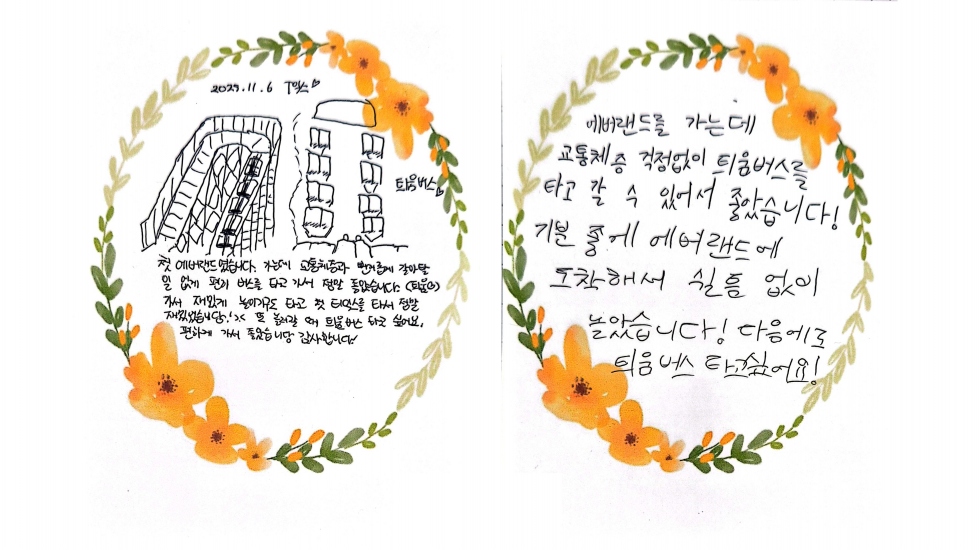 2025.11.6 T익스♡
틔움버스♡
첫 에버랜드였습니다. 가는데 교통체증과 번거롭게 갈아탈
일 없게 편히 버스를 타고 가서 정말 좋았습니다. (틔움이)
가서 재밌게 놀이기구도 타고 첫 티익스를 타서 정말
재밌었습니당! >< 또 놀러갈 때 틔움버스 타고 싶어요,
편하게 가서 좋았습니당 감사합니다!
에버랜드를 가는데
교통체증 걱정없이 틔움버스를
타고 갈 수 있어서 좋았습니다!
기분 좋게 에버랜드에
도착해서 쉴틈 없이
놀았습니다! 다음에도
틔움버스 타고싶어요!